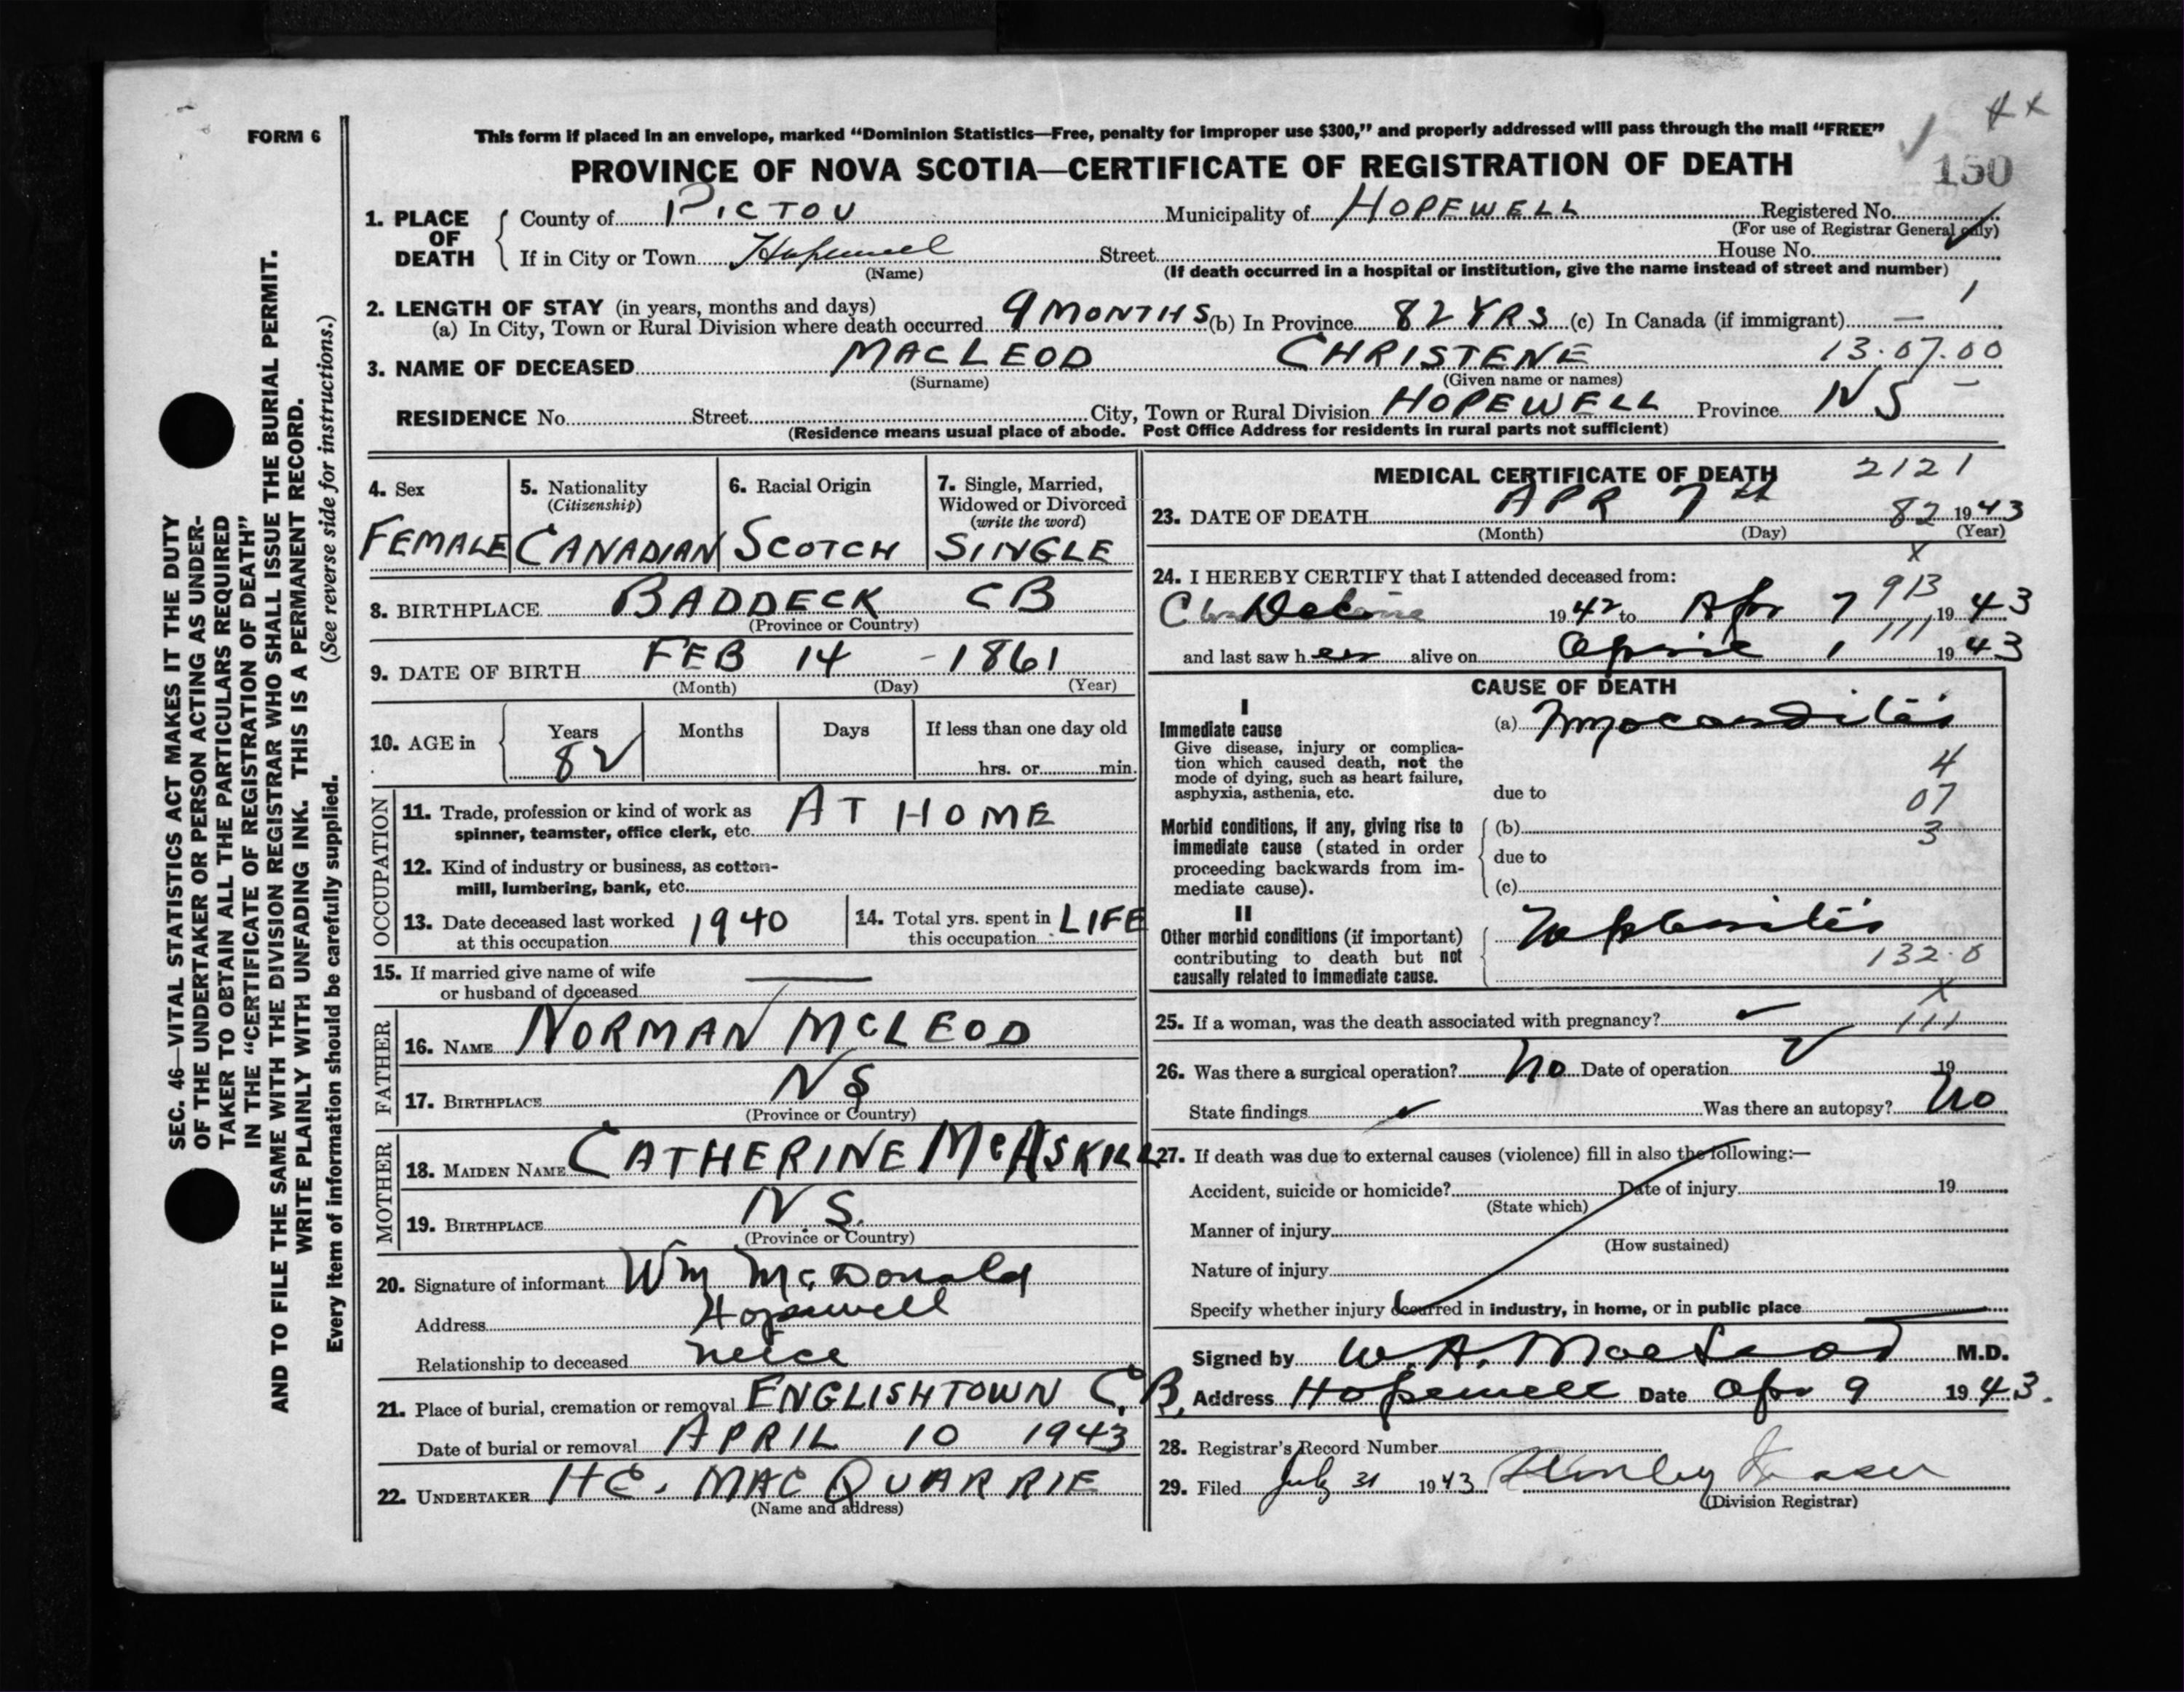 FORM 6
This form if placed in an envelope, marked “Dominion Statistics—Free, penalty for improper use $300,” and properly addressed will pass through the mail “FREE”
PROVINCE OF NOVA SCOTIA—CERTIFICATE OF REGISTRATION OF DEATH
150
1. PLACE OF DEATH
County of PICTOU Municipality of HOPEWELL Registered No.
(For use of Registrar General only)
If in City or Town Hopewell Street House No.
(Name) (If death occurred in a hospital or institution, give the name instead of street and number)
2. LENGTH OF STAY (in years, months and days) 1
(a) In City, Town or Rural Division where death occurred 9 MONTHS (b) In Province 82 YRS (c) In Canada (if immigrant) —
3. NAME OF DECEASED MACLEOD CHRISTENE 13.07.00
(Surname) (Given name or names)
RESIDENCE No. Street City, Town or Rural Division HOPEWELL Province NS
(Residence means usual place of abode. Post Office Address for residents in rural parts not sufficient)
4. Sex
FEMALE
5. Nationality
(Citizenship)
CANADIAN
6. Racial Origin
SCOTCH
7. Single, Married,
Widowed or Divorced
(write the word)
SINGLE
8. BIRTHPLACE BADDECK CB
(Province or Country)
9. DATE OF BIRTH FEB 14 - 1861
(Month) (Day) (Year)
10. AGE in Years Months Days If less than one day old
82 hrs. or min.
OCCUPATION
11. Trade, profession or kind of work as
spinner, teamster, office clerk, etc. AT HOME
12. Kind of industry or business, as cotton-
mill, lumbering, bank, etc.
13. Date deceased last worked
at this occupation 1940
14. Total yrs. spent in
this occupation LIFE
15. If married give name of wife
or husband of deceased —
FATHER
16. NAME NORMAN MCLEOD
17. BIRTHPLACE NS
(Province or Country)
MOTHER
18. MAIDEN NAME CATHERINE MCASKILL
19. BIRTHPLACE N.S.
(Province or Country)
20. Signature of informant Wm McDonald
Address Hopewell
Relationship to deceased neice
21. Place of burial, cremation or removal ENGLISHTOWN C.B.
Date of burial or removal APRIL 10 1943
22. UNDERTAKER HC. MACQUARRIE
(Name and address)
MEDICAL CERTIFICATE OF DEATH 2121
23. DATE OF DEATH APR 7th 82 1943
(Month) (Day) (Year)
24. I HEREBY CERTIFY that I attended deceased from: x
1942 to Apr 7 913 1943
and last saw her alive on April 1 111 1943
CAUSE OF DEATH
I
Immediate cause
Give disease, injury or complica-
tion which caused death, not the
mode of dying, such as heart failure,
asphyxia, asthenia, etc.
(a) Myocarditis
4
due to 07
Morbid conditions, if any, giving rise to
immediate cause (stated in order
proceeding backwards from im-
mediate cause).
(b) 3
due to
(c)
II
Other morbid conditions (if important)
contributing to death but not
causally related to immediate cause.
Nephritis
132.0
x
25. If a woman, was the death associated with pregnancy? 111
26. Was there a surgical operation? No Date of operation 19
State findings Was there an autopsy? No
27. If death was due to external causes (violence) fill in also the following:—
Accident, suicide or homicide? Date of injury 19
(State which)
Manner of injury
(How sustained)
Nature of injury
Specify whether injury occurred in industry, in home, or in public place
Signed by W. A. MacLeod M.D.
Address Hopewell Date Apr 9 1943.
28. Registrar's Record Number
29. Filed July 31 1943 Fraser
(Division Registrar)
SEC. 46—VITAL STATISTICS ACT MAKES IT THE DUTY
OF THE UNDERTAKER OR PERSON ACTING AS UNDER-
TAKER TO OBTAIN ALL THE PARTICULARS REQUIRED
IN THE “CERTIFICATE OF REGISTRATION OF DEATH”
AND TO FILE THE SAME WITH THE DIVISION REGISTRAR WHO SHALL ISSUE THE BURIAL PERMIT.
WRITE PLAINLY WITH UNFADING INK. THIS IS A PERMANENT RECORD.
Every item of information should be carefully supplied. (See reverse side for instructions.)